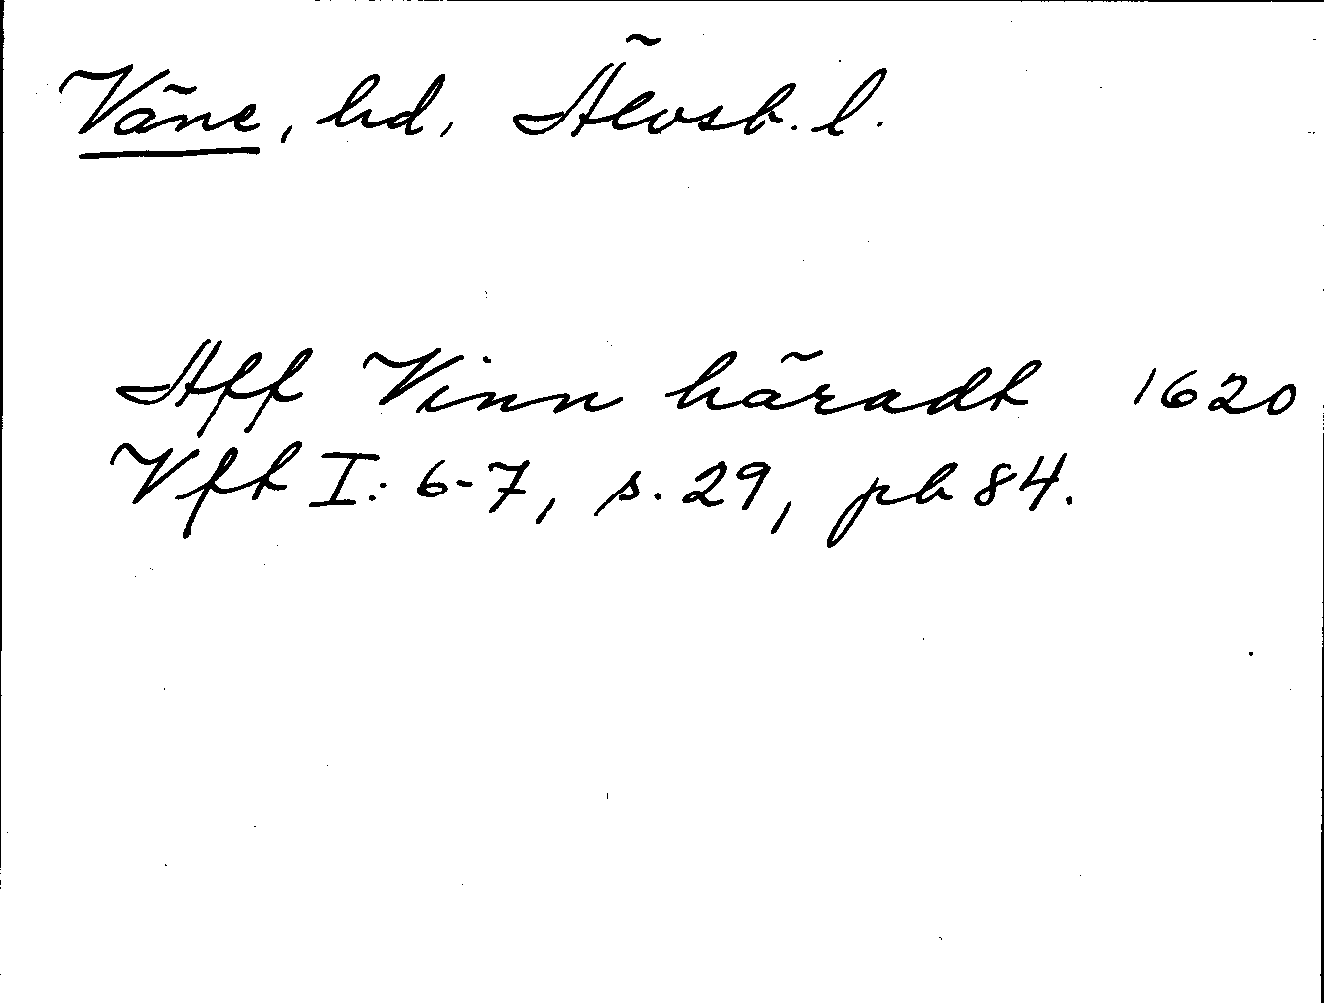 Väne, hd, Älvsb. l.
Aff Vinn häradt 1620
Vft I: 6-7, s. 29, pb 84.